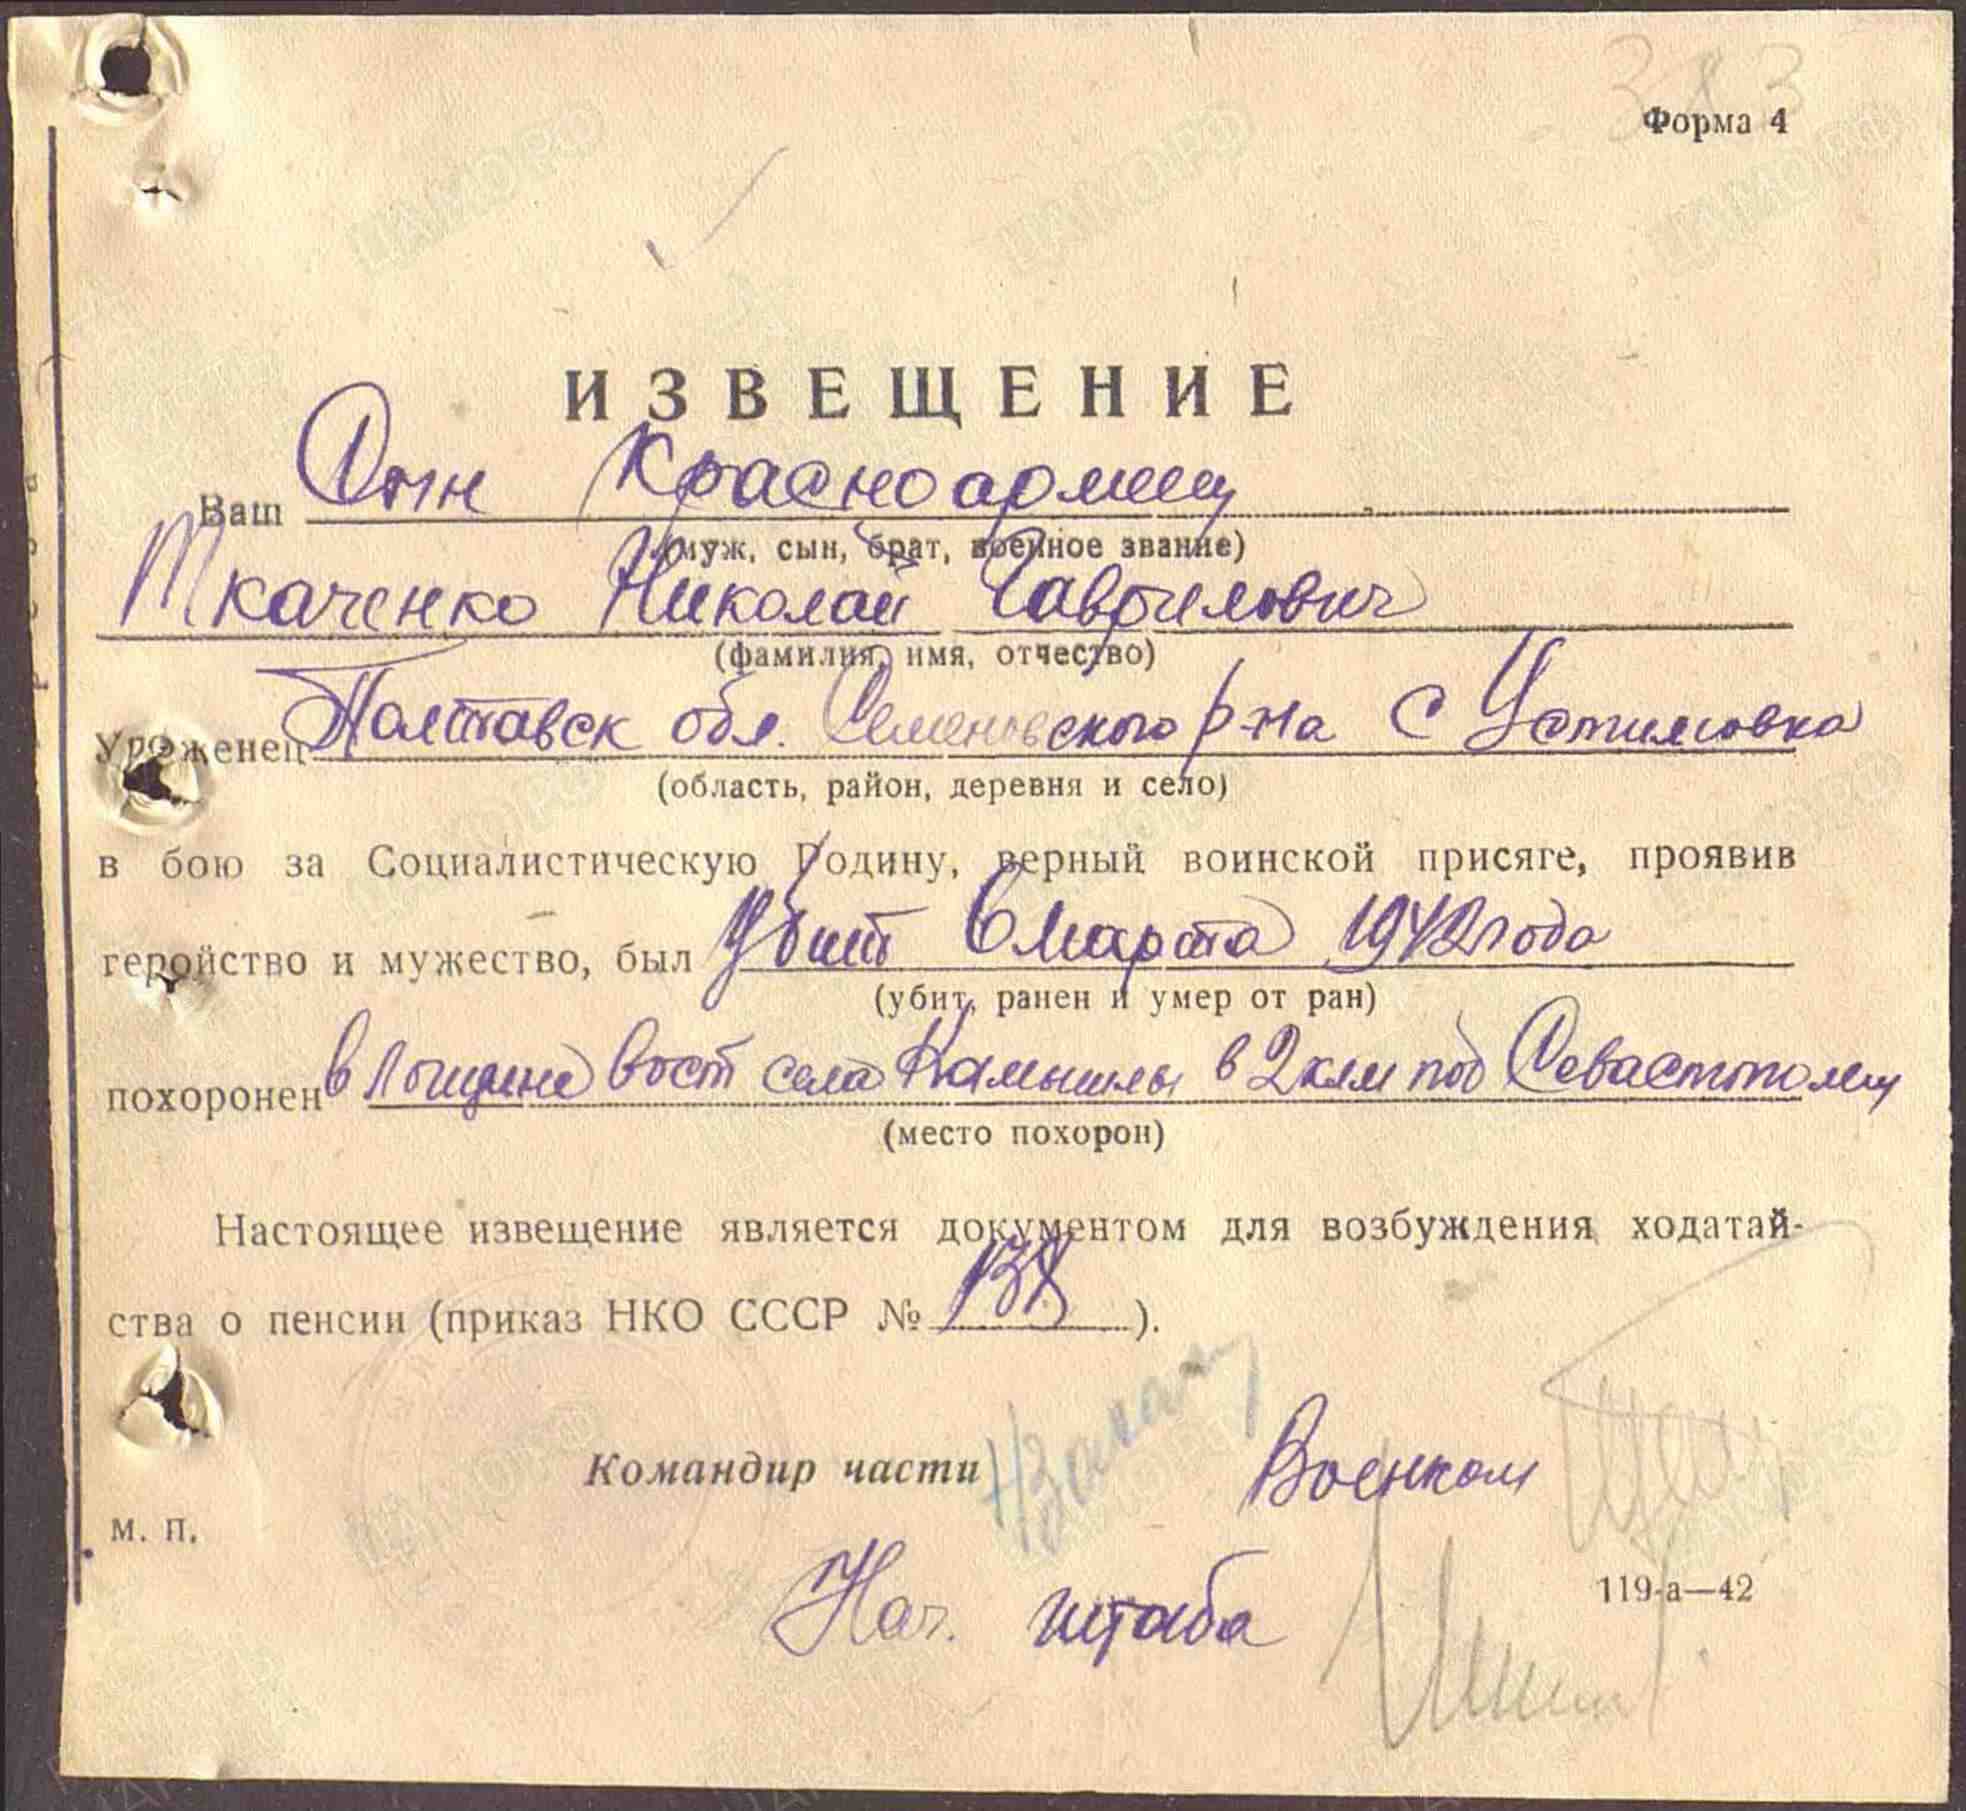 383
Форма 4
ИЗВЕЩЕНИЕ
Ваш Сын Красноармеец
(муж, сын, брат, военное звание)
Ткаченко Николай Гаврилович
(фамилия, имя, отчество)
Уроженец Полтавск обл. Семеновского р-на с Устимовка
(область, район, деревня и село)
в бою за Социалистическую Родину, верный воинской присяге, проявив
геройство и мужество, был убит 6 марта 1942 года
(убит, ранен и умер от ран)
похоронен в лощине вост села Камышлы в 2 клм под Севастополем
(место похорон)
Настоящее извещение является документом для возбуждения ходатай-
ства о пенсии (приказ НКО СССР № 138).
Командир части Военком
м. п.
Нач. штаба
119-а—42
ЦАМО РФ